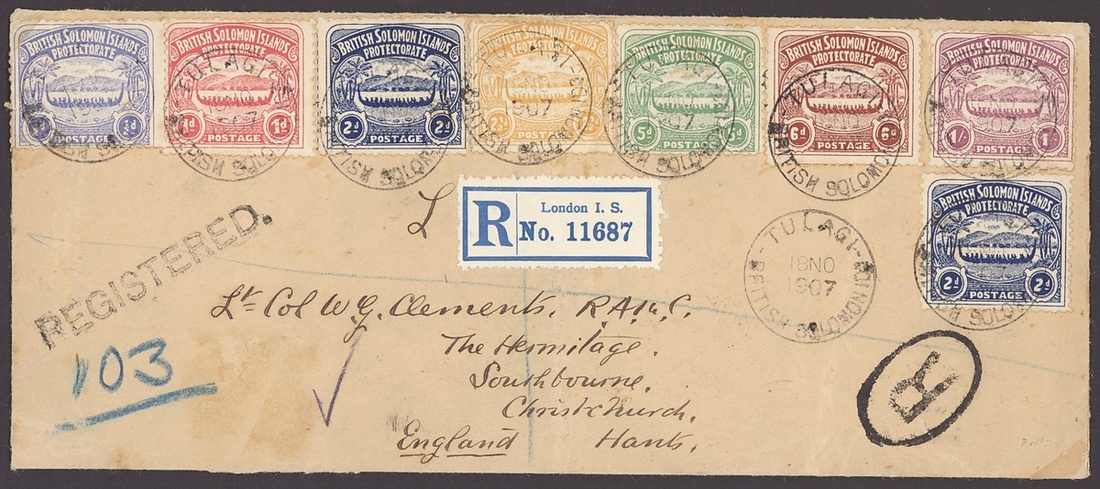 BRITISH SOLOMON ISLANDS PROTECTORATE ½d ½d POSTAGE
BRITISH SOLOMON ISLANDS PROTECTORATE 1d 1d POSTAGE
BRITISH SOLOMON ISLANDS PROTECTORATE 2d 2d POSTAGE
BRITISH SOLOMON ISLANDS PROTECTORATE 2½d 2½d POSTAGE
BRITISH SOLOMON ISLANDS PROTECTORATE 5d 5d POSTAGE
BRITISH SOLOMON ISLANDS PROTECTORATE 6d 6d POSTAGE
BRITISH SOLOMON ISLANDS PROTECTORATE 1/- 1/- POSTAGE
BRITISH SOLOMON ISLANDS PROTECTORATE 2d 2d POSTAGE
L
R London I. S.
No. 11687
TULAGI
18 NO
1907
BRITISH SOLOMON IS
REGISTERED.
103
Lt. Col W G. Clements. R.A.M.C.
The Hermitage.
Southbourne.
Christchurch.
England Hants.
R